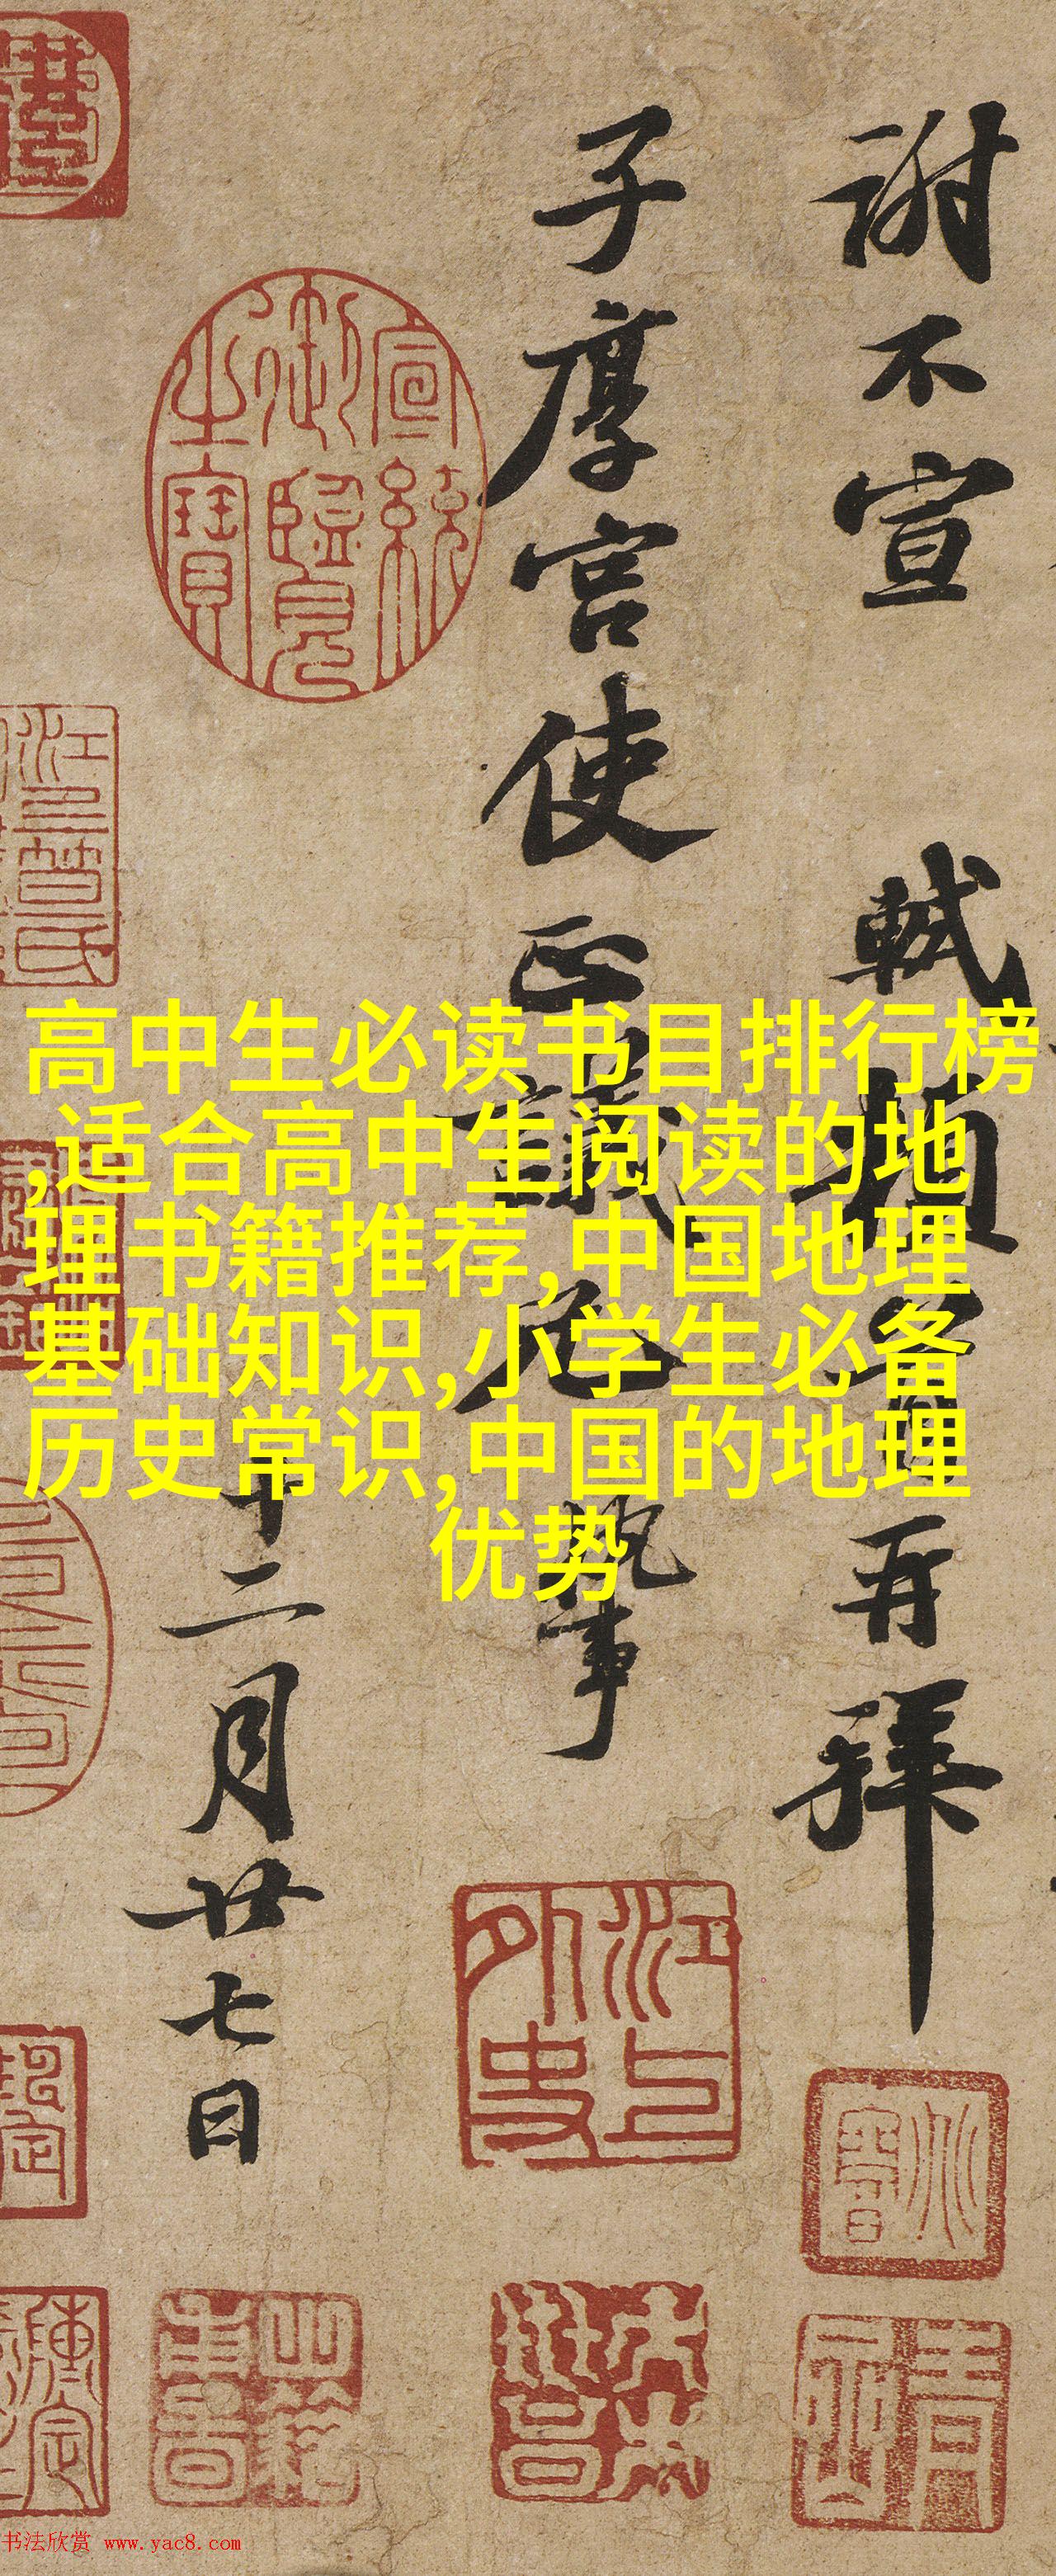 謝不宣 軾頓首再拜
子厚宫使正議兄執事
十二月廿七日
宣統御覽之寶
高中生必读书目排行榜
,适合高中生阅读的地
理书籍推荐,中国地理
基础知识,小学生必备
历史常识,中国的地理
优势
江上外史
书法欣赏 www.yac8.com